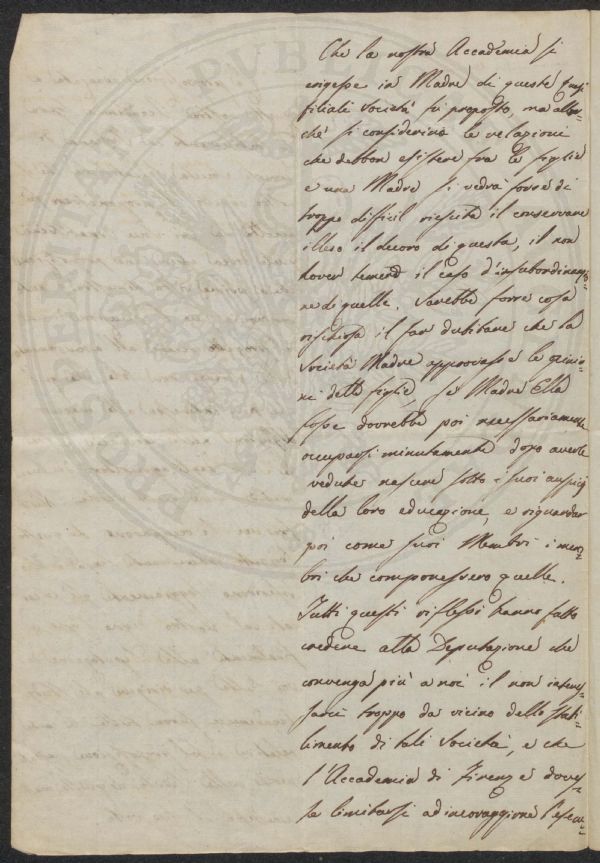 Che la nostra Accademia si
erigesse in Madre di queste quasi
filiali Società fu proposto, ma allor-
chè si considerino le relazioni
che debbon esistere fra le figlie
e una Madre si vedrà forse di
troppo difficil riescita il conservare
illeso il decoro di questa, il non
dover temere il caso d'insubordinazio-
ne di quelle. Sarebbe forse cosa
rischiosa il far dubitare che la
Società Madre approvasse le opinio-
ni delle figlie, se Madre Ella
fosse dovrebbe poi necessariamente
occuparsi minutamente dopo averle
vedute nascere sotto i suoi auspicj
della loro educazione, e riguardar
poi come suoi Membri i mem-
bri che componessero quelle.
Tutti questi riflessi hanno fatto
credere alla Deputazione che
convenga più a noi il non interes-
sarci troppo da vicino dello Stabi-
limento di tali Società, e che
l'Accademia di Firenze doves-
se limitarsi ad incoraggirne l'esecu-
PUBLI
PROSPERITA